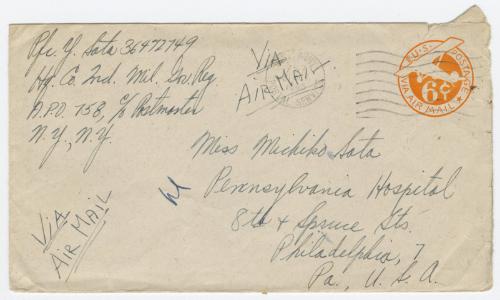 Pfc. Y. Sata 36472749
Hq. Co. 2nd. Mil. Gov. Reg.
A.P.O. 758, c/o Postmaster
N.Y., N.Y.
Via
Air Mail
U.S. POSTAGE
6¢
VIA AIR MAIL
Miss Michiko Sata
Pennsylvania Hospital
8th & Spruce Sts.
Philadelphia, 7
Pa., U.S.A.
Via
Air Mail